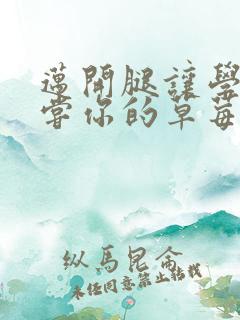 邁開腿讓學
嘗你的草莓
纵馬昆仑
未经同意禁止转载